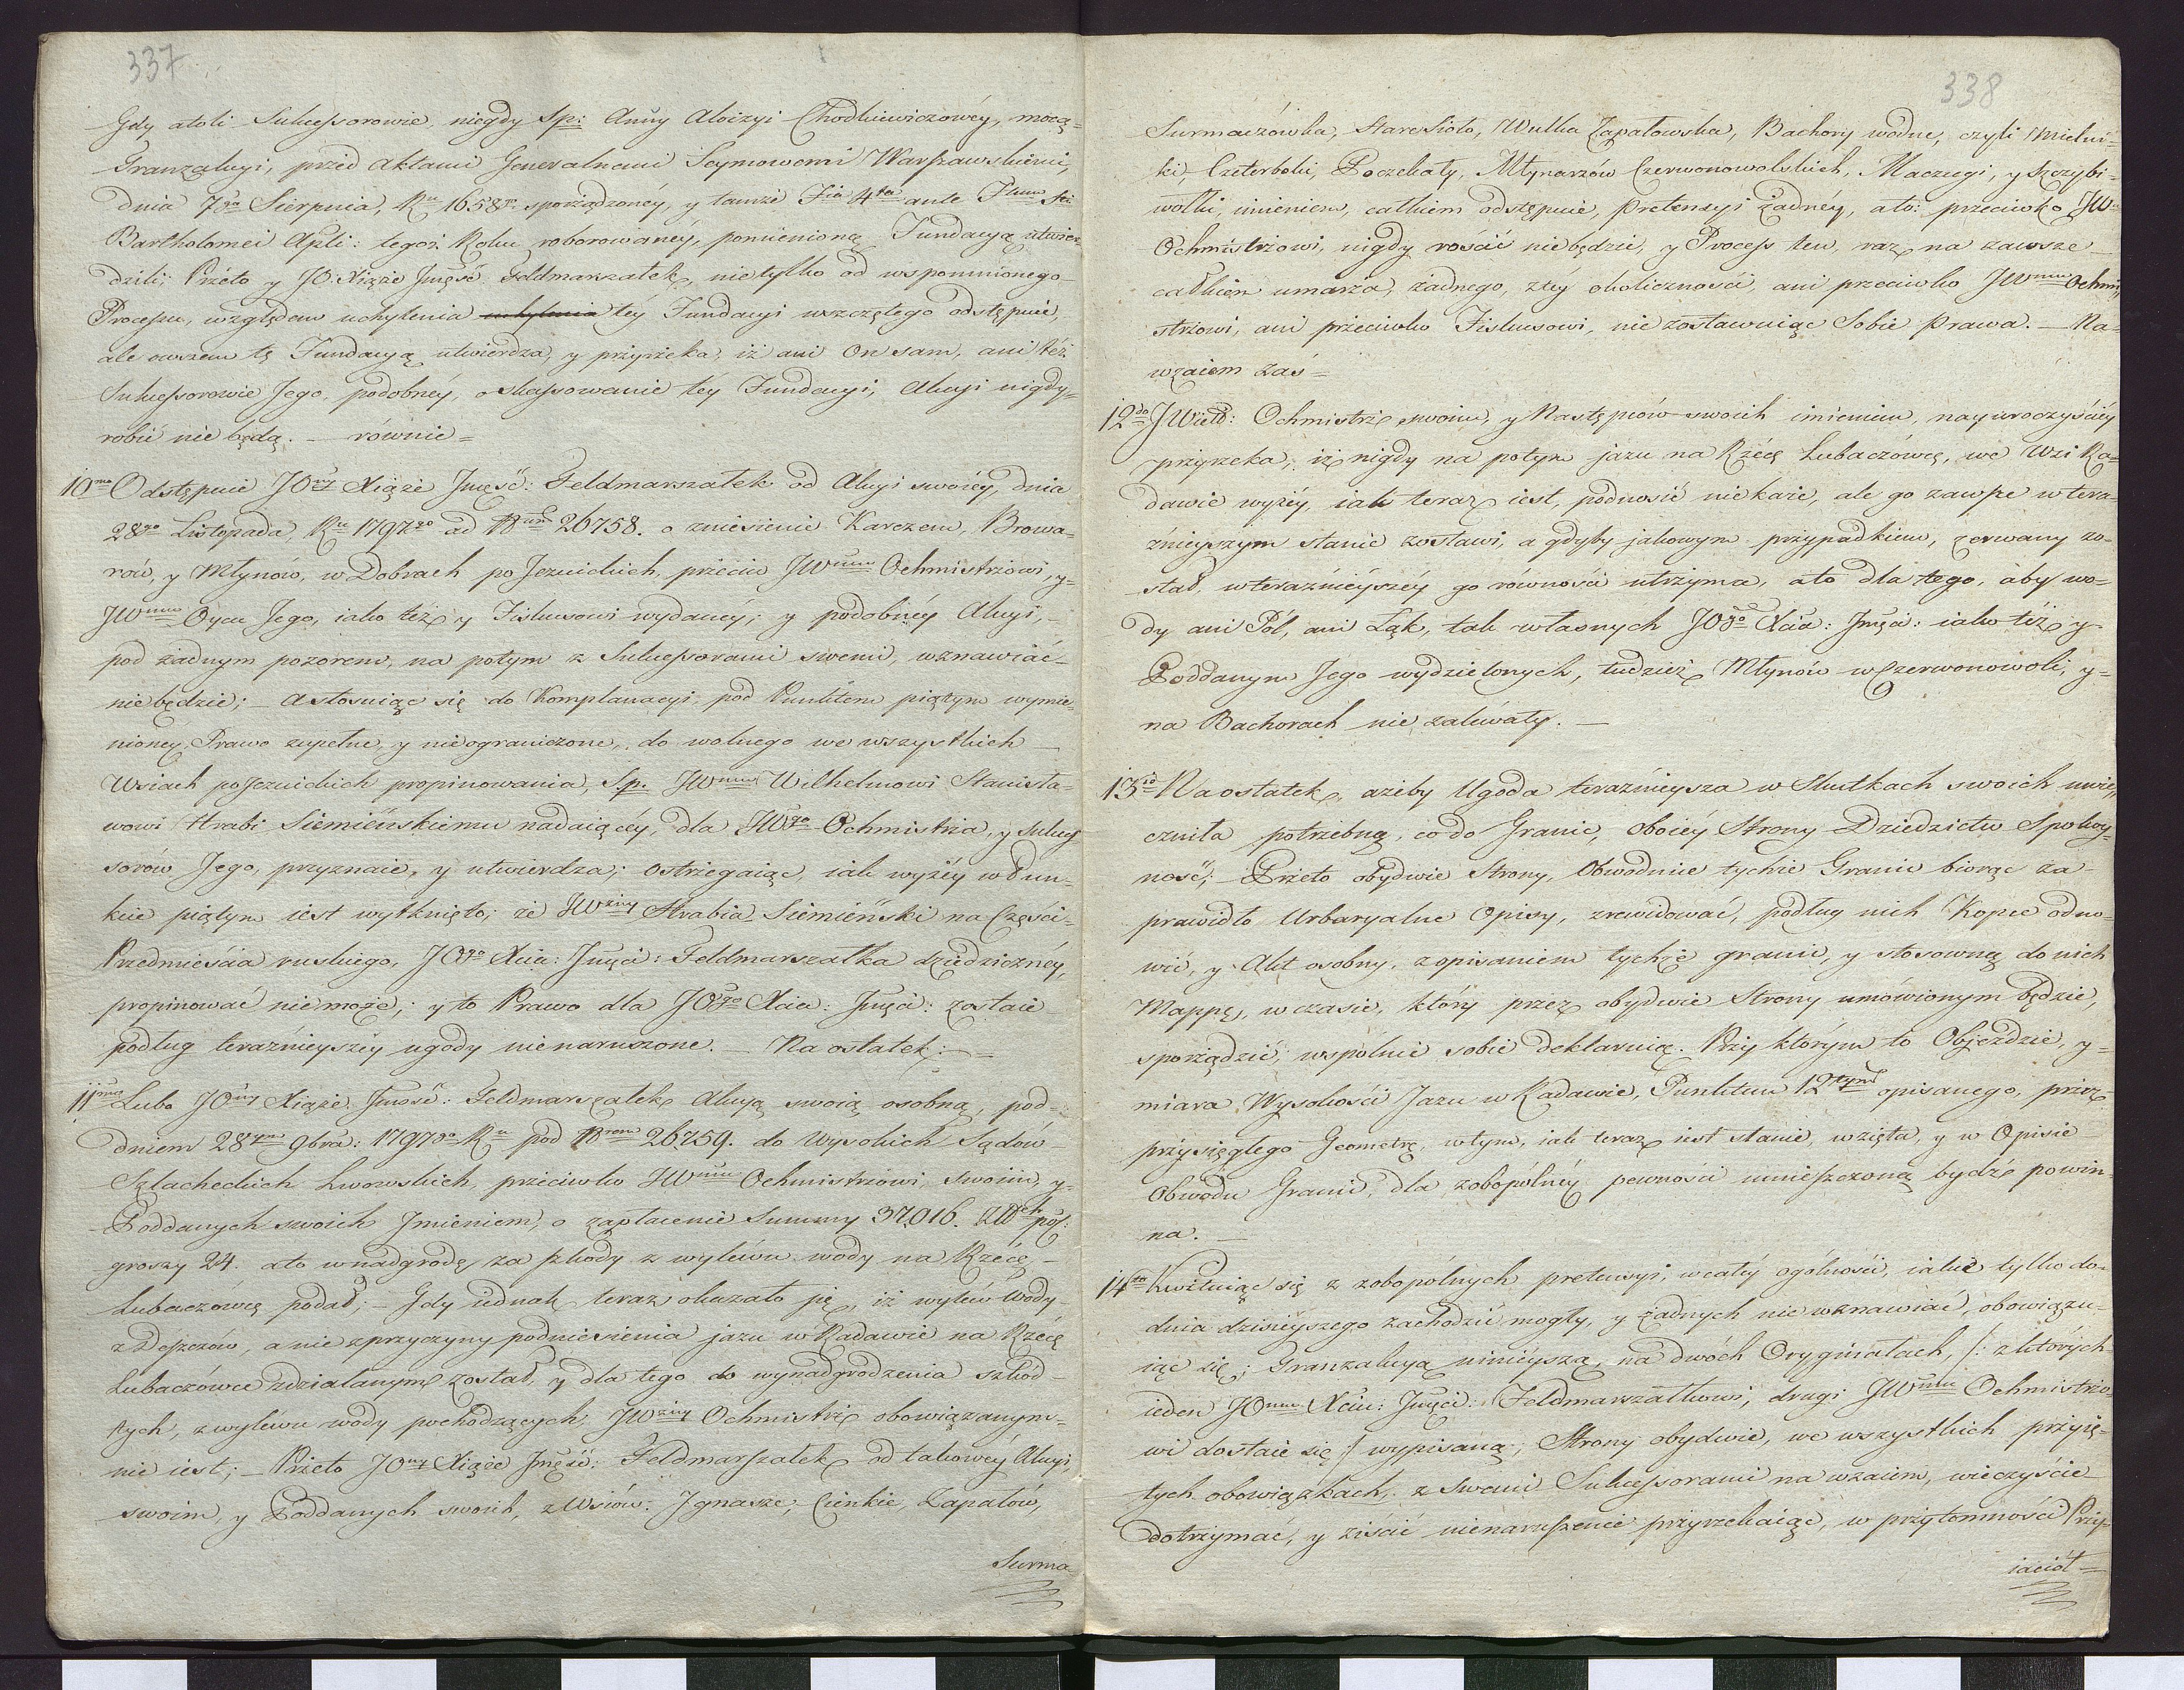 337
Gdy atoli Sukcessorowie, niegdy Sp: Anny Aloizyi Chodkiewiczowéy, mocą
Tranzakcyi, przed Aktami Generalnemi Seymowemi Warszawskiemi,
dnia 7go Sierpnia, Ru 1658go sporządzonéy, y tamże Fia 4ta ante Ftum Sti
Bartholomei Apli: tegoż Roku roborowanéy, pomienioną Fundacyą utwier-
dzili; Przeto y JO: Xiąże Jmość Feldmarszałek, nietylko od wspomnionego
Processu, względem uchylenia uchylenia téy Fundacyi wszczętego odstępuie,
ale owszem tę Fundacyą utwierdza, y przyrzeka, iż ani On sam, ani też
Sukcessorowie Jego, podobnéy, o skassowanie téy Fundacyi, Akcyi nigdy
robić nie będą. – równie =
10mo Odstępuie JOny Xiąże Jmość: Feldmarszałek od Akcyi swoiéy, dnia
28go Listopada, Ru 1797go ad Num 26758. o zniesienie Karczem, Browa-
rów, y Młynów, w Dobrach po Jezuickich, przeciw JWmu Ochmistrzowi, y
JWmu Oycu Jego, iako też y Fiskusowi wydanéy; y podobnéy Akcyi, –
pod żadnym pozorem, na potym z Sukcessorami swemi, wznawiać
niebędzie; – a stosuiąc się do Komplanacyi, pod Punktem piątym wymie-
nionéy, Prawo zupełne, y nieograniczone, do wolnego we wszystkich
Wsiach poJezuickich propinowania, S.p. JWmu Wilhelmowi Stanisła-
wowi Hrabi Siemieńskiemu nadaiącéy, dla JWgo Ochmistrza, y Sukces-
sorów Jego, przyznaie, y utwierdza; ostrzegaiąc, iak wyżéy w Pun-
kcie piątym iest wytknięto; że JWżny Hrabia Siemieński na Części
Przedmieścia ruskiego, JOgo Xcia: Jmści: Feldmarszałka dziedzicznéy,
propinować niemoże; y to Prawo dla JOgo Xcia: Jmści: zostaie
podług teraźnieyszéy ugody nienaruszone. – Na ostatek: –
11mo Lubo JOny Xiąże Jmość: Feldmarszałek Akcyą swoią osobną, pod
dniem 28ym 9bra: 1797go Ru pod Nrem 26759. do Wysokich Sądów
Szlacheckich Lwowskich, przeciwko JWmu Ochmistrzowi, swoim, y
Poddanych swoich Jmieniem, o zapłacenie Summy 37,016. Złłch pol:
groszy 24. a to w nadgrodę za szkody z wyléwu wody na Rzécę
Lubaczówcę podał; – Gdy iednak teraz okazało się, iż wyléw wody
z deszczów, a nie z przyczyny podniesienia jazu w Radawie na Rzécę
Lubaczówce zdziałanym został, y dla tego do wynadgrodzenia szkod
tych, z wyléwu wody pochodzących, JWżny Ochmistrz obowiązanym
nie iest; – Przeto JOny Xiąże Jmość: Feldmarszałek od takowéy Akcyi,
swoim, y Poddanych swoich, z Wsiów: Ignasze, Cienkie, Zapałów,
Surma
338
Surmaczówka, Stare Sioło, Wulka Zapałowska, Bachory wodne, czyli Mielni-
ki, Czeterboki, Poczekaty, Młynarzów Czerwonowolskich, Maczugi, y Szczybi-
wołki, imieniem, całkiem odstępuie, pretensyi żadnéy, ato: przeciwko JWu
Ochmistrzowi, nigdy rościć niebędzie, y Process ten, raz na zawsze
całkiem umarza, żadnego, z téy okoliczności, ani przeciwko JWmu Ochmi-
strzowi, ani przeciwko Fiskusowi, nie zostawuiąc Sobie prawa. – Na-
wzaiem zaś =
12do JWield: Ochmistrz swoim, y Następców swoich imieniem, nayuroczyściéy
przyrzeka; iż nigdy na potym jazu na Rzécę Lubaczówcę, we Wsi Ra-
dawie wyżéy, iak teraz iest, podnosić niekaże, ale go zawsze w tera-
źnieyszym stanie zostawi, a gdyby jakowym przypadkiem, zerwany zo-
stał, w teraźnieyszéy go równości utrzyma, ato dla tego, aby wo-
dy ani Pól, ani Łąk, tak własnych JOgo Xcia: Jmści: iako też y
Poddanym Jego wydzielonych, tudzież Młynów w Czerwonowoli, y
na Bachorach nie zaléwały. –
13tio Na ostatek, ażeby Ugoda teraźnieysza w Skutkach swoich uwie-
czniła potrzebną, co do Granic, oboiéy Strony Dziedzictw Spokoy-
ność; – Przeto obydwie Strony, Obwodnice tychże Granic biorąc za
prawidło Urbaryalne Opisy, zrewidować, podług nich Kopce odno-
wić, y Akt osobny, z opisaniem tychże granic, y stosowną do nich
Mappę, w czasie, który przez obydwie Strony umówionym będzie,
sporządzić, wspólnie sobie deklaruią. Przy którym to Objeździe, y
miara Wysokości Jazu w Radawie, Punktem 12tym opisanego, przez
przysięgłego Geometrę, w tym, iak teraz iest stanie, wzięta, y w Opisie
Obwodu Granic, dla zobopólnéy pewności umieszczoną bydź powin-
na. –
14to Kwituiąc się z zobopólnych pretensyi, w całéy ogólności, iakie tylko do
dnia dzisieyszego zachodzić mogły, y żadnych nie wznawiać, obowiązu-
iąc się; Tranzakcyą ninieyszą, na dwóch Oryginałach, /: z których
ieden JOmu Xciu: Jmści: Feldmarszałkowi, drugi JWmu Ochmistrzo-
wi dostaie się :/ wypisaną, Strony obydwie, we wszystkich przyię-
tych obowiązkach, z Swemi Sukcessorami na wzaiem, wieczyście
dotrzymać, y ziścić nienaruszenie przyrzekaiąc, w przytomności Przy-
iaciół =